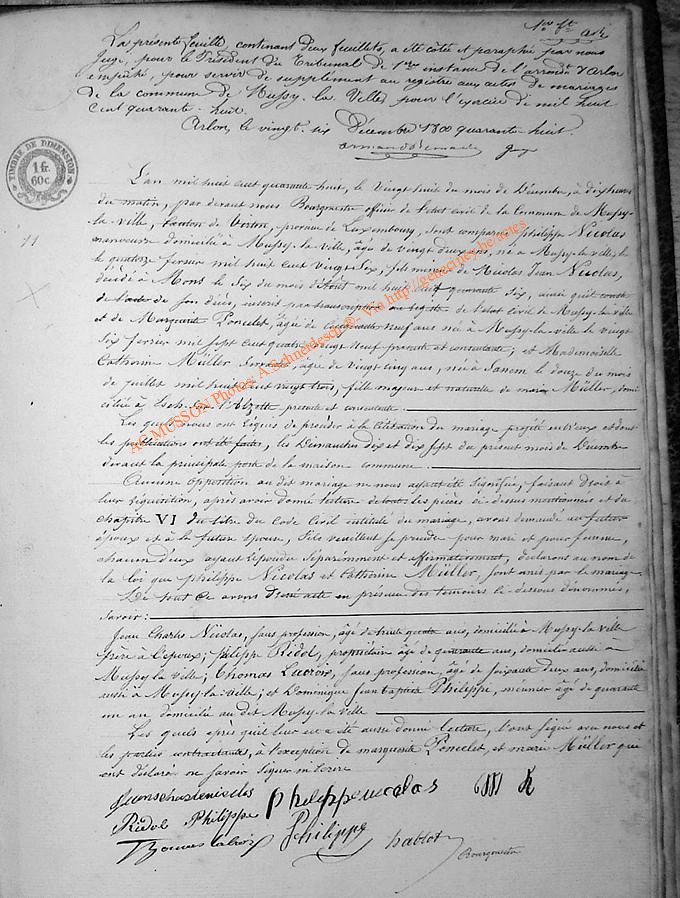 La présente feuille, contenant deux feuillets, a été cotée et paraphée par nous
Juge, pour le Président du Tribunal de 1ère instance de l'arrondt d'Arlon
empêché, pour servir de supplément au registre aux actes de mariages
de la commune de Mussy-la-Ville, pour l'exercice de mil huit
cent quarante-huit.
Arlon, le vingt-six Décembre 1800 quarante-huit.
TIMBRE DE DIMENSION
1 fr.
60 c
L'an mil huit cent quarante huit, le Vingt huit du mois de Décembre, à dix heures
du matin, par devant nous Bourgmestre officier de l'état civil de la Commune de Mussy-
la-ville, Canton de Virton, province de Luxembourg, sont comparus philippe Nicolas
manoeuvre domicilié à Mussy-la-ville, âgé de vingt deux ans, né à Mussy-la-ville, le
quatorze fevrier mil huit cent vingt Six, fils majeur de Nicolas Jean Nicolas,
décédé à Mons le Six du mois d'Août mil huit cent quarante Six, ainsi qu'il conste
de l'acte de son décès, inscrit par transcription au registre de l'état civil de Mussy-la-ville
et de Marguerite Poncelet, âgée de Cinquante neuf ans née à Mussy-la-ville le vingt
Six fevrier mil sept cent quatre vingt neuf présente et consentante; et Mademoiselle
Catherine Müller Servante, âgée de vingt cinq ans, née à Sanem le douze du mois
de juillet mil huit cent vingt trois, fille majeure et naturelle de marie Müller, domi
ciliée à Esch sur l'Alzette présente et consentante.
Les quels nous ont requis de procéder à la célébration du mariage projeté entr'eux et dont
les publications ont été faites, les Dimanches dix et dix sept du présent mois de Décembre
devant la principale porte de la maison commune.
Aucune opposition au dit mariage ne nous ayant été signifiée, faisant droit à
leur réquisition, après avoir donné lecture de toutes les pièces ci-dessus mentionnées et du
chapitre VI du titre du Code Civil intitulé du mariage, avons demandé au futur
époux et à la future épouse, s'ils veuillent se prendre pour mari et pour femme,
chacun d'eux ayant répondu séparément et affirmativement, déclarons au nom de
la loi que philippe Nicolas et Catherine Müller, sont unis par le mariage.
De tout ce avons dressé acte en présence des témoins ci-dessous dénommés,
savoir:
Jean Charles Nicolas, sans profession, âgé de trente quatre ans, domicilié à Mussy-la-ville
frère à l'époux; philippe Ridol, propriétaire âgé de quarante ans, domicilié aussi à
Mussy-la-ville; Thomas Lacroix, sans profession, âgé de soixante deux ans, domicilié
aussi à Mussy-la-ville; et Dominique Jean Baptiste Philippe, meunier âgé de quarante
un an domicilié au dit Mussy-la-ville
Les quels après qu'il leur eut été aussi donné lecture, l'ont signé avec nous et
les parties contractantes, à l'exception de marguerite Poncelet, et marie Müller qui
ont déclaré ne savoir signer ni écrire
philippe nicolas
Ridol Philippe
Thomas lacroix
Philippe
hablot
Bourgmestre
AC MUSSON Photos: A.Schneidesch ® - Via http://geneacmes.be/actes